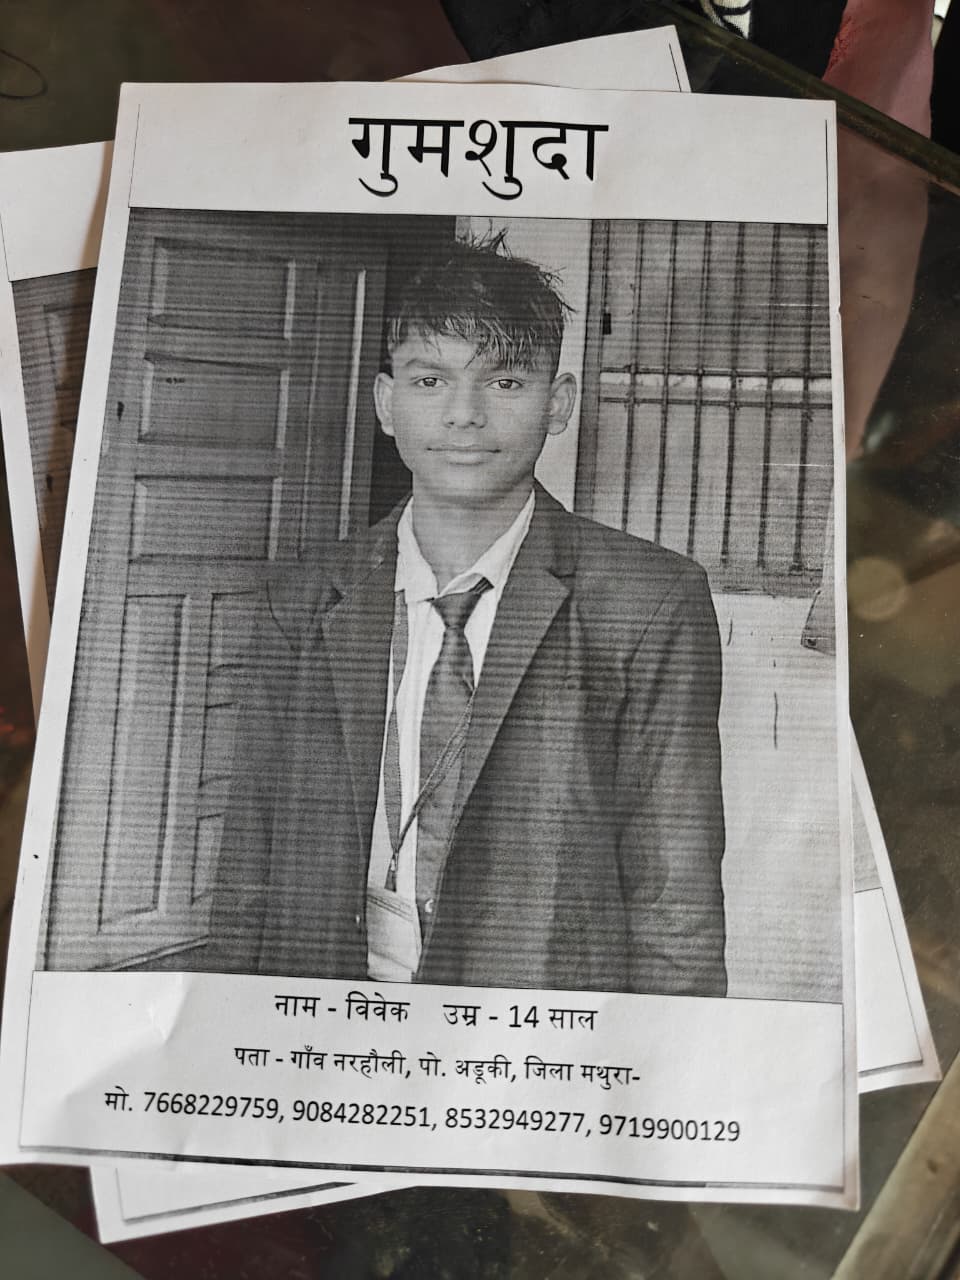 गुमशुदा
नाम - विवेक उम्र - 14 साल
पता - गाँव नरहौली, पो. अडूकी, जिला मथुरा-
मो. 7668229759, 9084282251, 8532949277, 9719900129